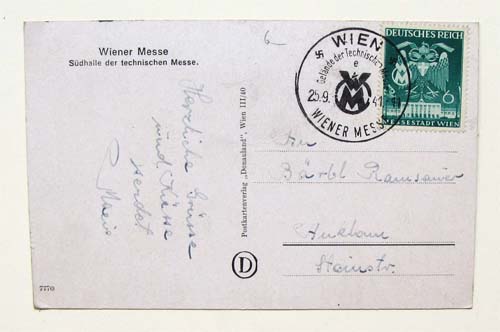 Wiener Messe
Südhalle der technischen Messe.
6
WIEN
Gelände der Technischen Messe
e
WM
25.9. 41
WIENER MESSE
DEUTSCHES REICH
WM
6
MESSESTADT WIEN
Herzliche Grüsse
und Küsse
sendet
Postkartenverlag „Donauland", Wien III/40
An
Bärbl Ramsauer
Steinstr.
D
7770